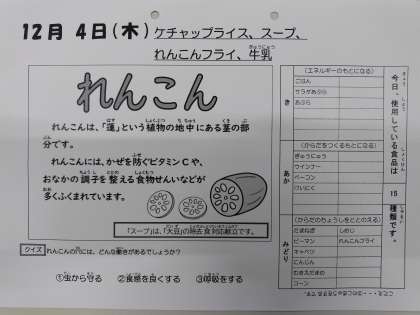 12月 4日(木)
ケチャップライス、スープ、
れんこんフライ、牛乳
れんこん
れんこんは、「蓮」という植物の地中にある茎の部
分です。
れんこんには、かぜを防ぐビタミンCや、
おなかの調子を整える食物せんいなどが
多くふくまれています。
「スープ」は、「大豆」の除去食対応献立です。
クイズ れんこんの穴には、どんな働きがあるでしょうか?
①虫から守る ②食感を良くする ③呼吸をする
今日、使用している食品は 15 種類です。
き
(エネルギーのもとになる)
ごはん
サラダあぶら
あぶら
あか
(からだをつくるもとになる)
ぎゅうにゅう
ウインナー
ベーコン
けいにく
みどり
(からだのちょうしをととのえる)
たまねぎ しめじ
ピーマン れんこんフライ
キャベツ
にんじん
むきえだまめ
コーン